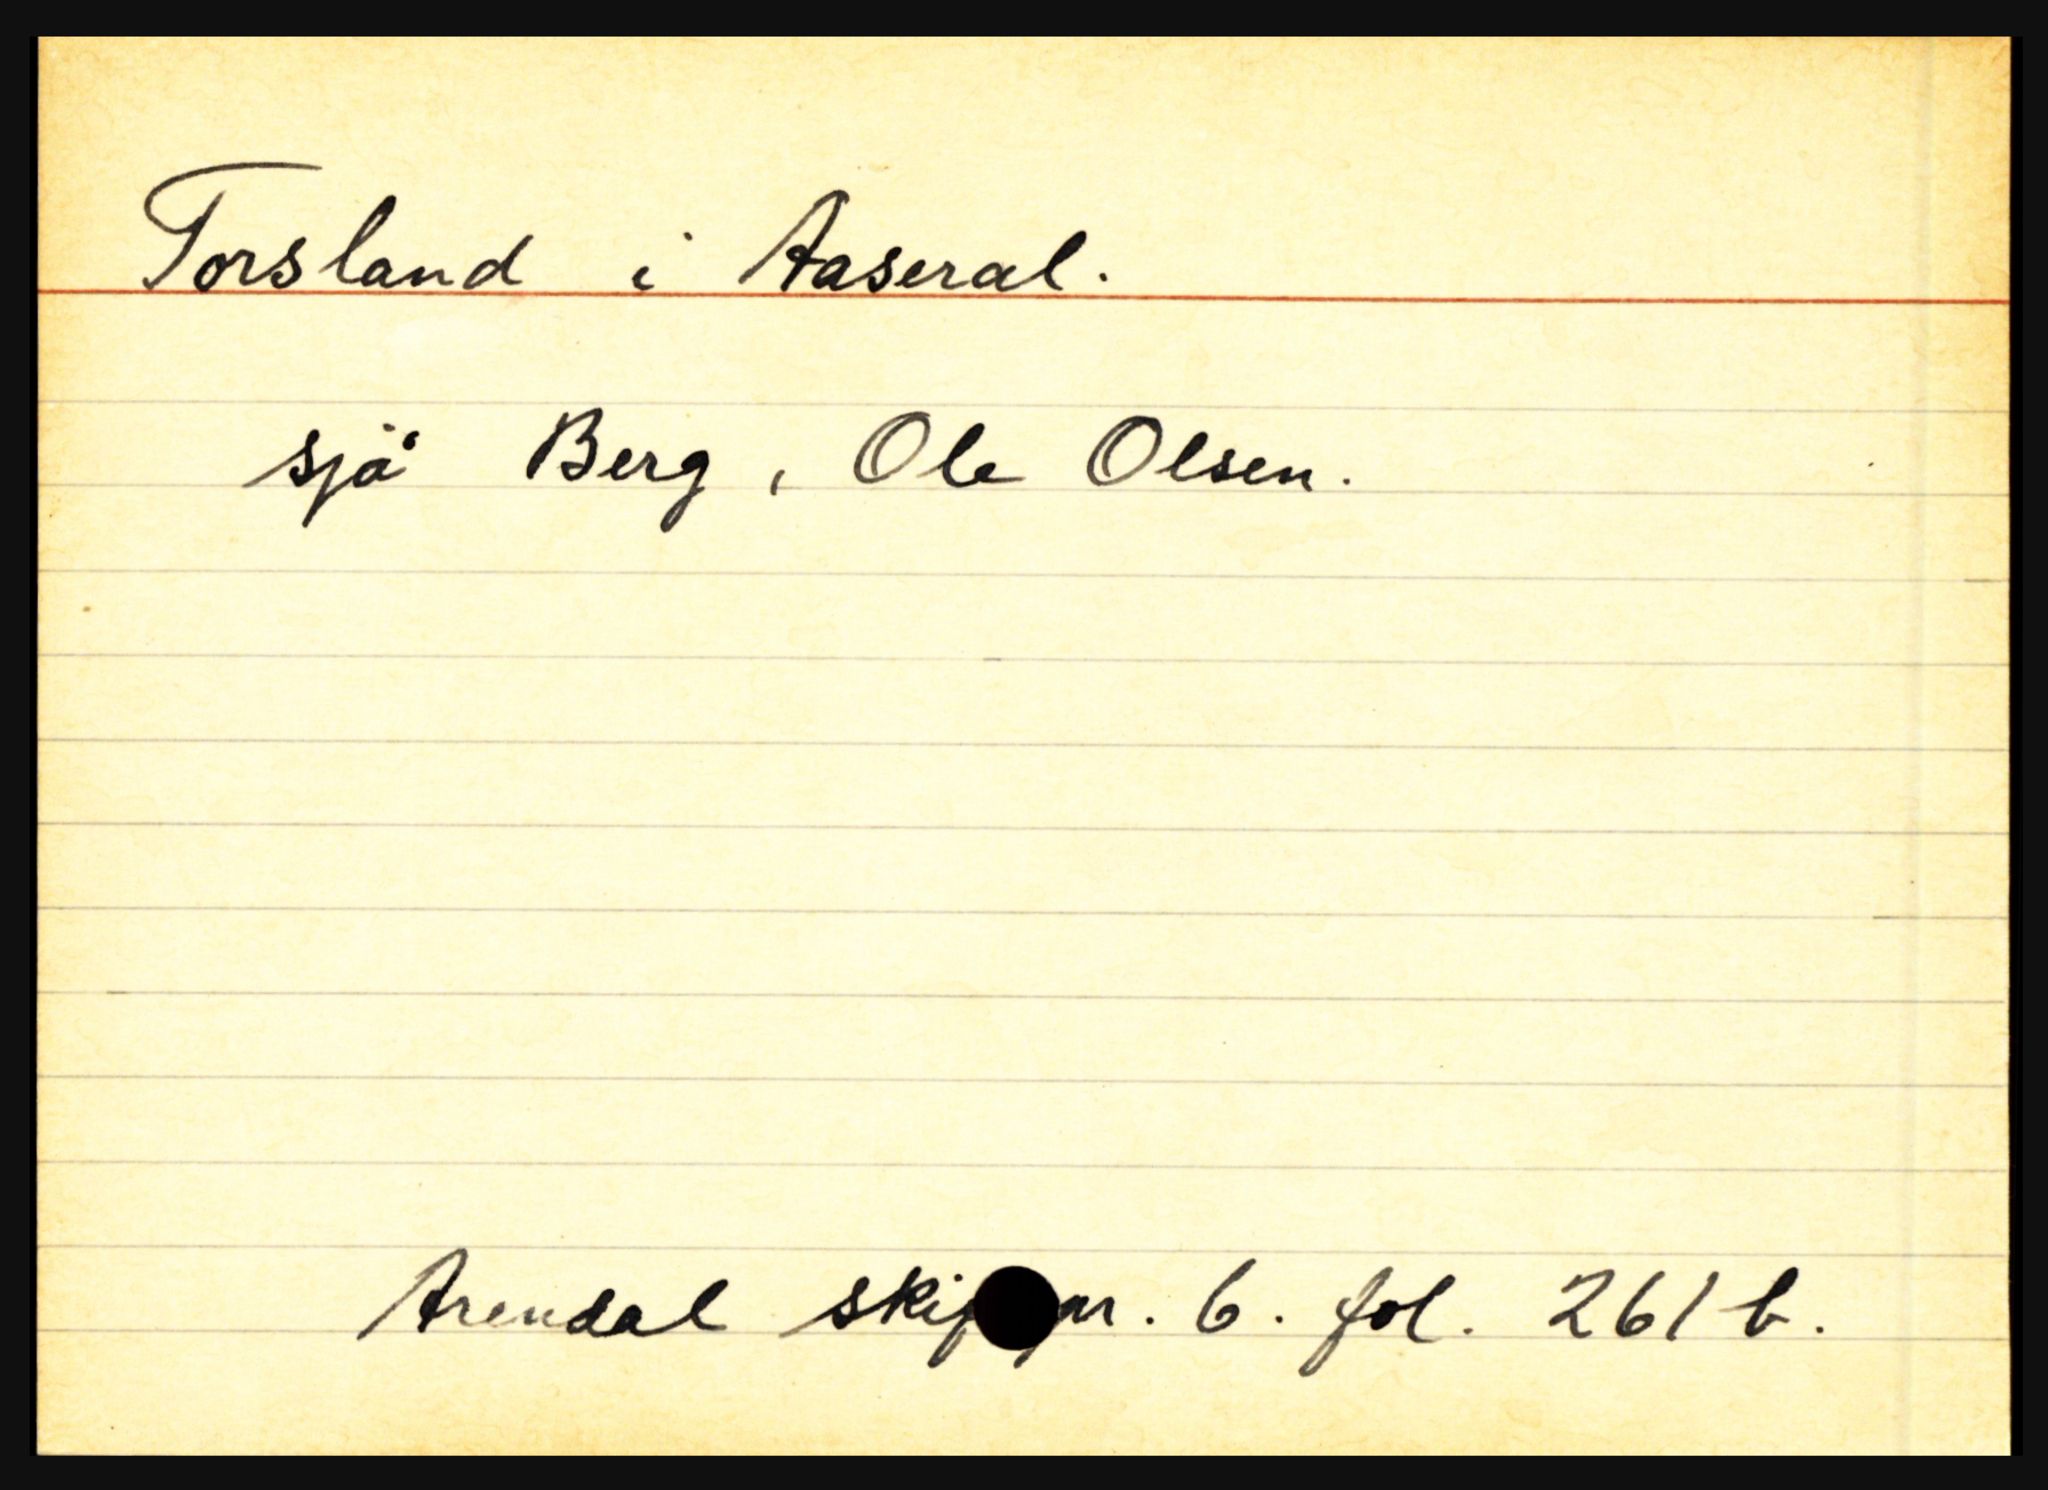 Torsland i Aaseral.
sjå Berg, Ole Olsen.
Arendal nr. 6. fol. 261 b.